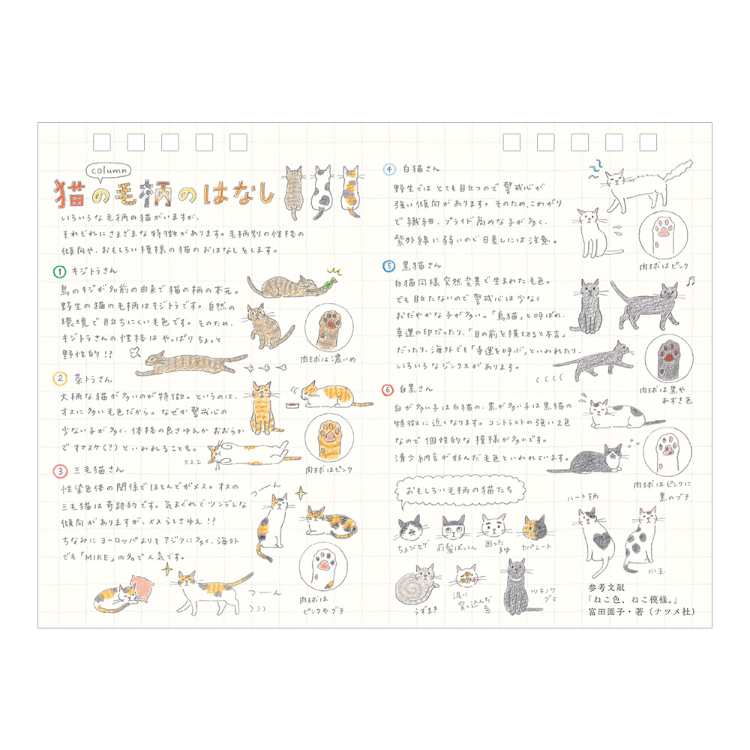 column
猫の毛柄のはなし
いろいろな毛柄の猫がいますが、
それぞれにさまざまな特徴があります。毛柄別の性格の
傾向や、おもしろい模様の猫のおはなしをします。
① キジトラさん
鳥のキジが名前の由来で猫の柄の本元。
野生の猫の毛柄はキジトラです。自然の
環境で目立ちにくい毛色です。そのため、
キジトラさんの性格は やっぱり ちょっと
野性的!?
肉球は濃いめ
② 茶トラさん
大柄な猫が多いのが特徴。というのは、
オスに多い毛色だから。なぜか警戒心の
少ない子が多く、体格の良さゆえか おおらか
で オマヌケ(?)といわれることも。
肉球はピンク
③ 三毛猫さん
性染色体の関係でほとんどがメス。オスの
三毛猫は奇跡的です。気まぐれでツンデレな
傾向がありますが、メスらしさゆえ!?
ちなみに ヨーロッパよりも アジアに多く、海外
でも「MIKE」の名で人気です。
つーん
つーん
肉球は
ピンクやブチ
④ 白猫さん
野生では とても目立つので 警戒心が
強い傾向が あります。そのため、こわがり
で 繊細、プライド高めな子が多く、
紫外線に弱いので日差しには注意。
肉球はピンク
⑤ 黒猫さん
白猫同様 突然変異で生まれた毛色。
でも目立たないので 警戒心は少なく
おだやかな子が多い。「烏猫」と呼ばれ、
幸運の印だったり、「目の前を横切ると不吉」
だったり、海外でも「幸運を呼ぶ」といわれたり、
いろいろなジンクスがあります。
肉球は黒や
あずき色
⑥ 白黒さん
白が多い子は白猫の、黒が多い子は黒猫の
特徴に近くなります。コントラストの強い2色
なので 個性的な 模様が多いです。
清少納言が好んだ毛色といわれています。
肉球はピンクに
黒のブチ
おもしろい毛柄の猫たち
ちょびヒゲ
前髪ぱっつん
困った
まゆ
セパレート
ハート柄
水玉
うずまき
泥に
突っ込んだ
系
ツキノワ
グマ
参考文献
「ねこ色、ねこ模様。」
富田園子・著(ナツメ社)